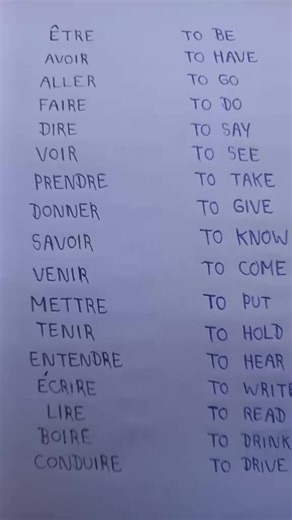 ÊTRE TO BE
AVOIR TO HAVE
ALLER TO GO
FAIRE TO DO
DIRE TO SAY
VOIR TO SEE
PRENDRE TO TAKE
DONNER TO GIVE
SAVOIR TO KNOW
VENIR TO COME
METTRE TO PUT
TENIR TO HOLD
ENTENDRE TO HEAR
ÉCRIRE TO WRITE
LIRE TO READ
BOIRE TO DRINK
CONDUIRE TO DRIVE